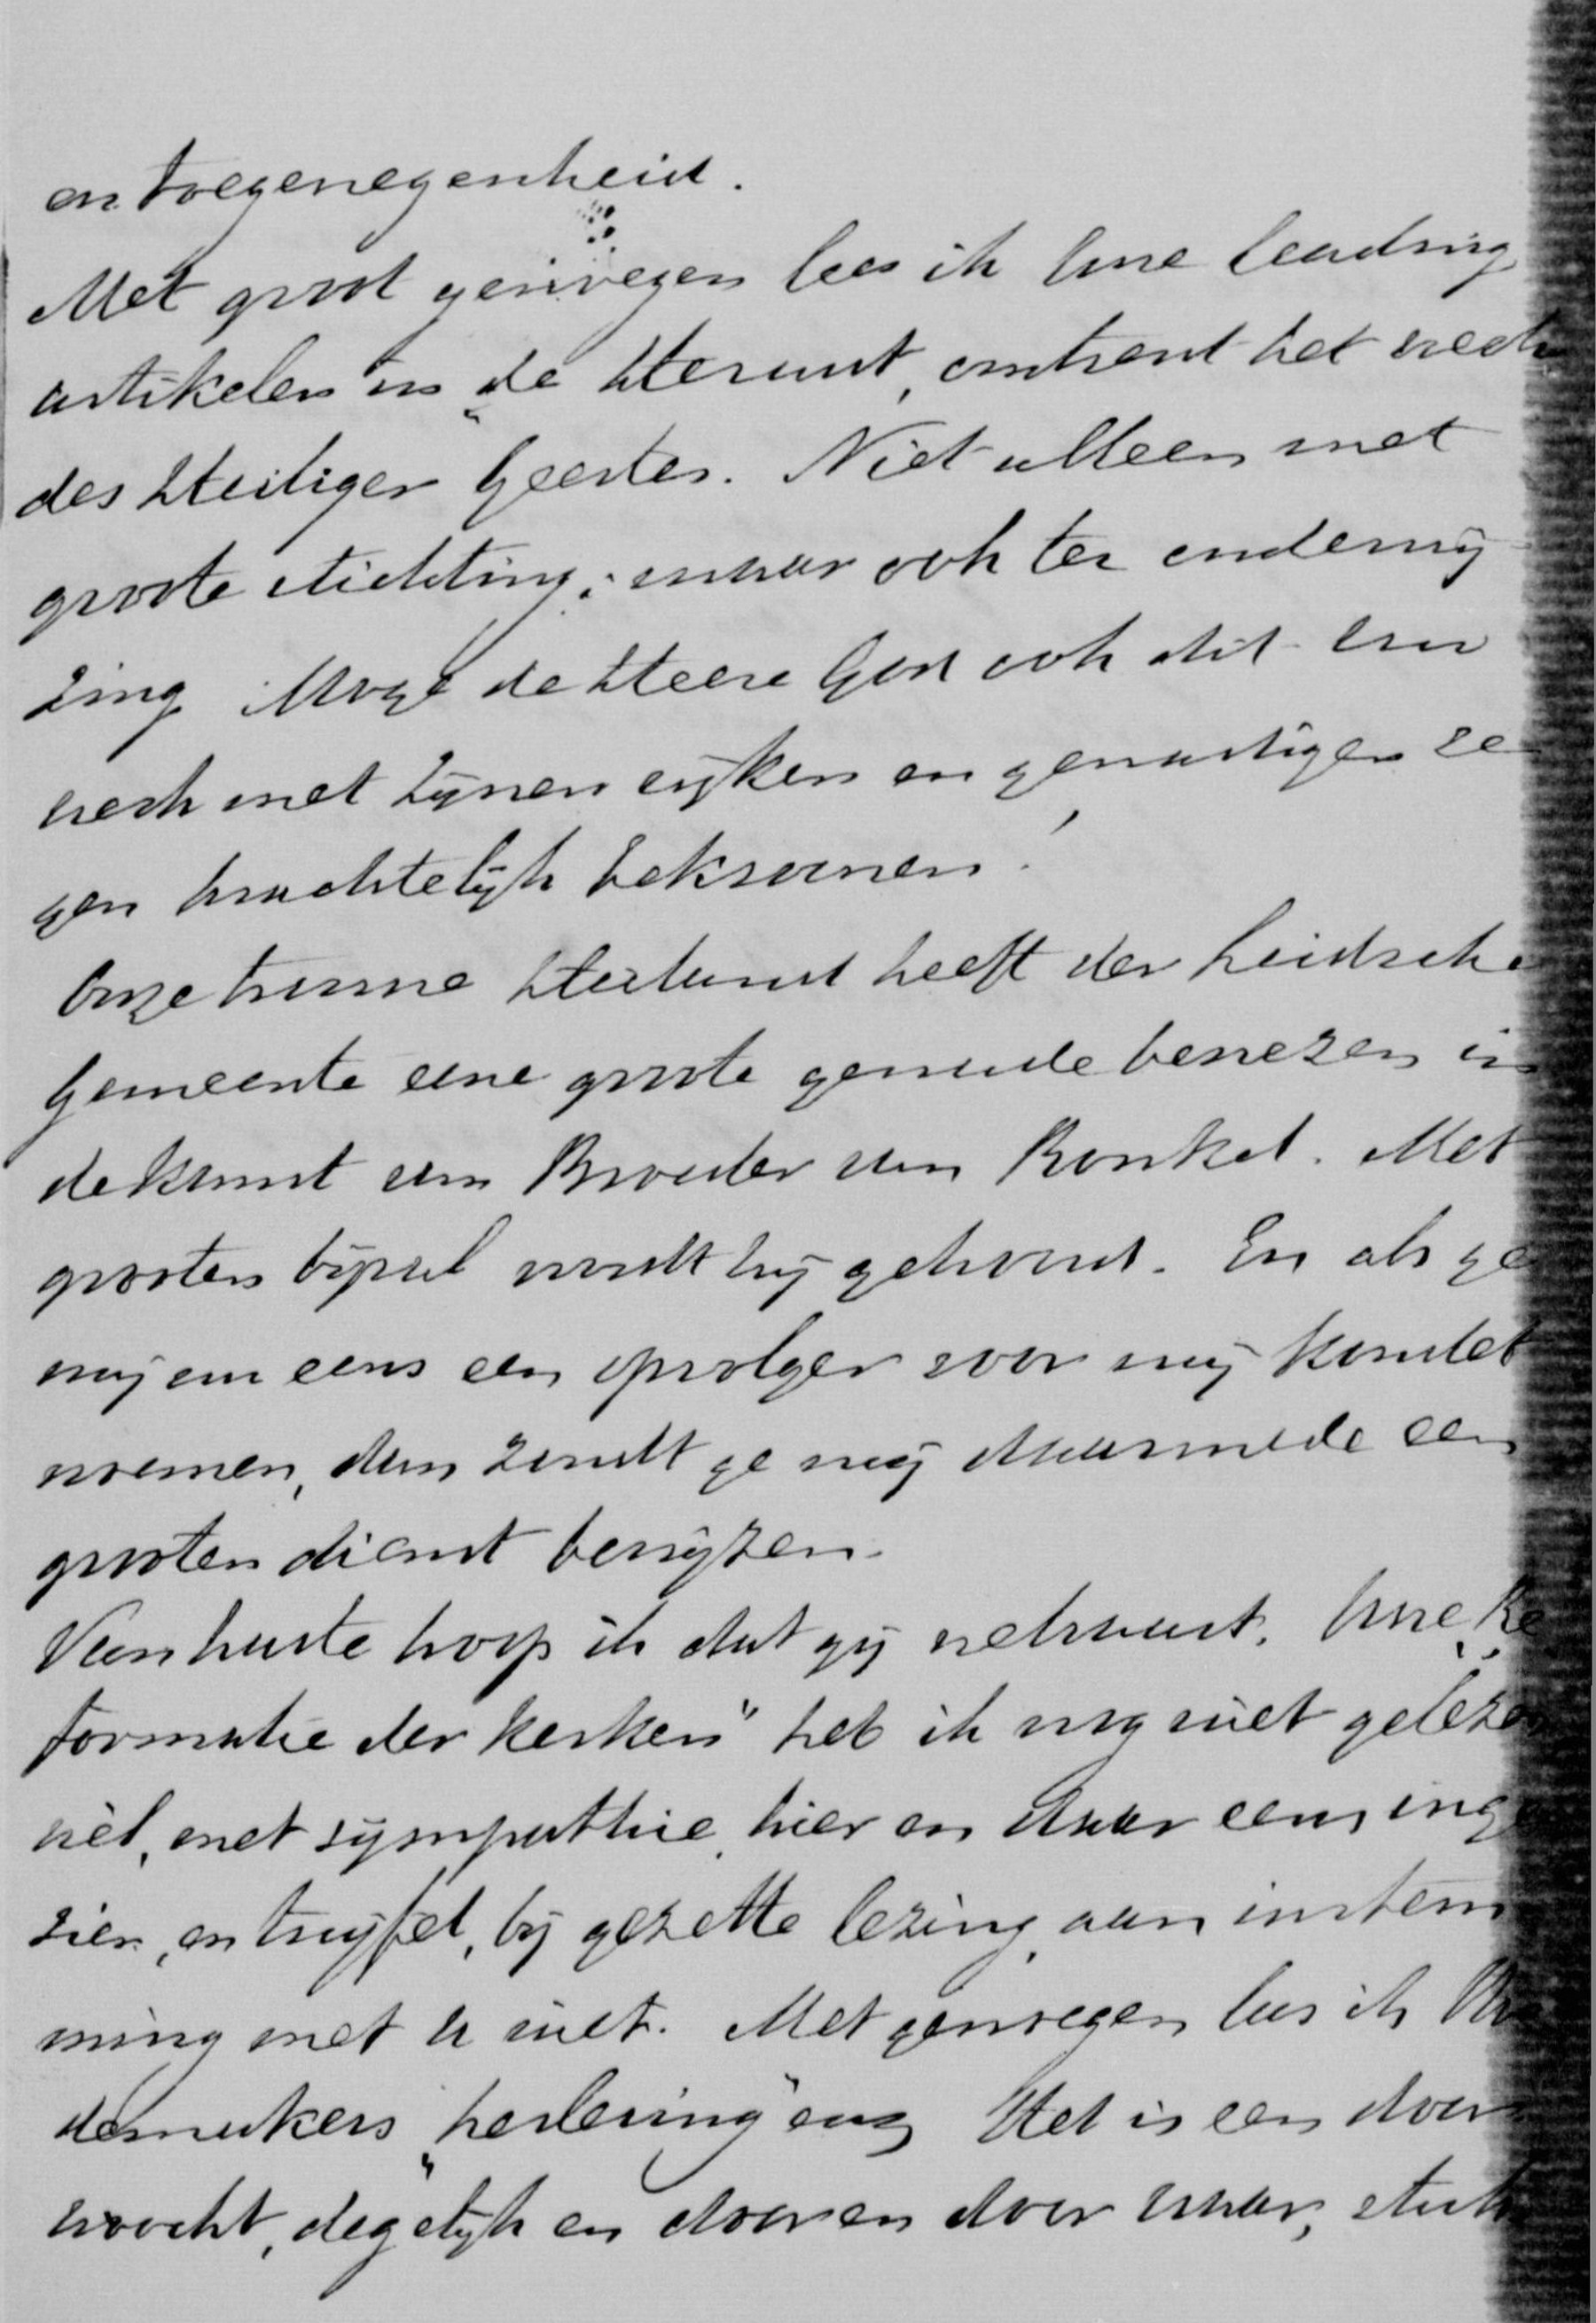 en toegenegenheid.
Met groot genoegen lees ik Uwe leading
artikelen in „de Heraut, omtrent het werk
des Heiligen Geestes. Niet alleen met
groote stichting, maar ook ter onderwij
zing. Moge de Heere God ook dit Uw
werk met Zijnen rijken en genadigen ze
gen krachtelijk bekroonen!
Onze trouwe Heiland heeft der Leidsche
Gemeente eene groote genade bewezen in
de komst van Broeder van Ronkel. Met
grooten bijval wordt hij gehoord. En als ge
mij nu eens een opvolger voor mij kondet
noemen, dan zoudt ge mij daarmede een
grooten dienst bewijzen.
Van harte hoop ik dat gij welvaart. Uwe „Re
formatie der kerken" heb ik nog niet gelezen
wel, met sympathie, hier en daar eens inge
zien, en twijfel, bij gezette lezing, aan instem
ming met U niet. Met genoegen las ik
demakers „herleving" enz. Het is een door
wrocht, degelijk en door en door waar, stuk